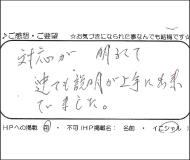 ♪ご感想・ご要望 ☆お気づきになられた事なんでも結構です☆
対応が 明るくて
とても説明が上手に出来
ていました。
HPへの掲載 可・不可(HP掲載名: 名前・イニシャル)